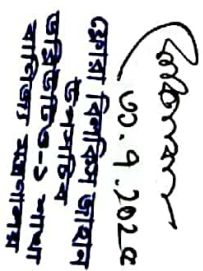 ৩০.৭.২০২৫
বিলকিস জাহান
উপসচিব
ডব্লিউটিও-১ শাখা
বাণিজ্য মন্ত্রণালয়